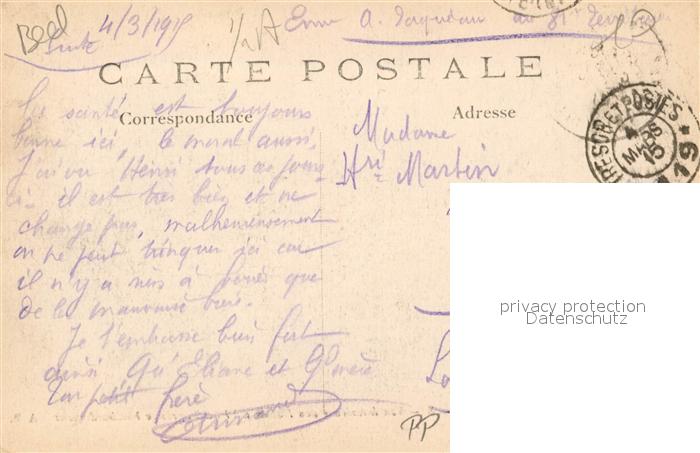 Bel
4/3/1915
Env A. Jaqueau au 81e Territorial
CARTE POSTALE
Correspondance
Adresse
La santé est toujours
bonne ici, le moral aussi,
J'ai vu Henri tous ces jours
ci il est très bien et ne
change pas, malheureusement
on ne peut trinquer ici car
il n'y a rien à boire que
de la mauvaise bière.
Je t'embrasse bien fort
ainsi qu'Eliane et Gd mère
Ton petit frère
Madame
Hri Martin
TRESOR ET POSTES
4
MARS
15
19
PP
privacy protection
Datenschutz